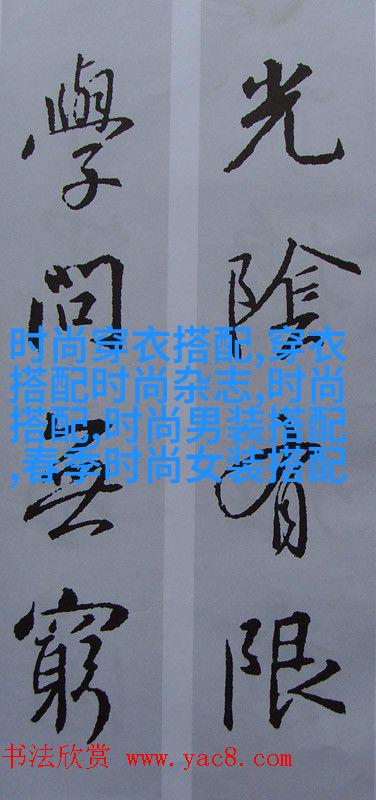 光陰有限
學問無窮
时尚穿衣搭配,穿衣
搭配时尚杂志,时尚
搭配,时尚男装搭配
,春季时尚女装搭配
书法欣赏 www.yac8.com